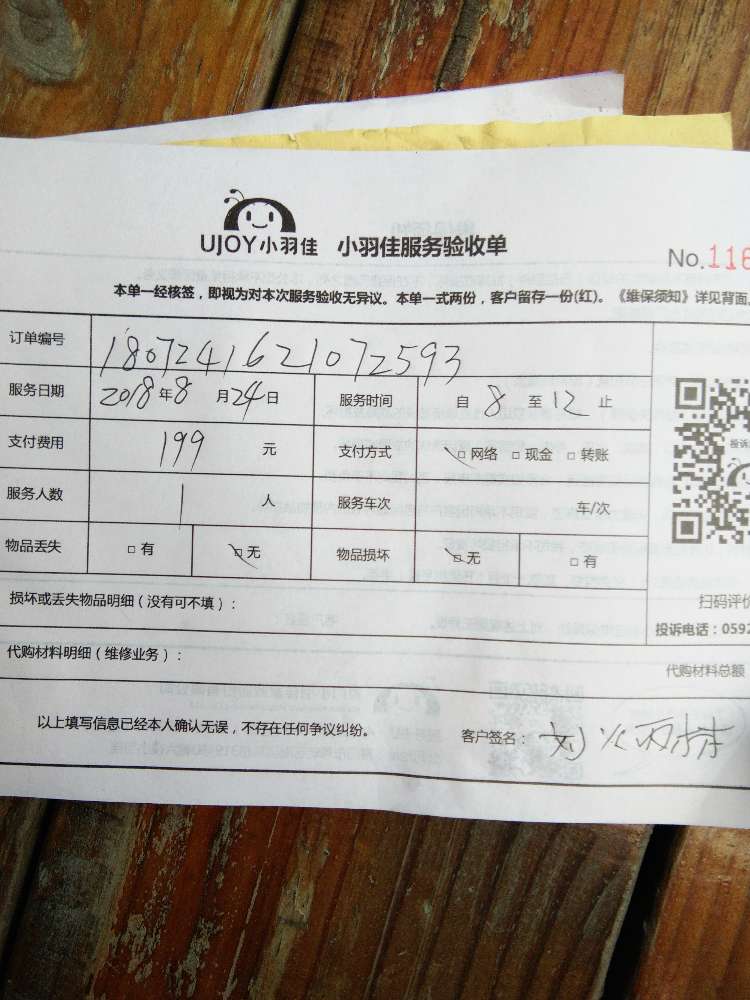 UJOY小羽佳 小羽佳服务验收单
No.116
本单一经核签，即视为对本次服务验收无异议。本单一式两份，客户留存一份(红)。《维保须知》详见背面。
订单编号 1807241621072593
服务日期 2018年8月24日 服务时间 自8至12止
支付费用 199元 支付方式 □网络 □现金 □转账
服务人数 1人 服务车次 车/次
物品丢失 □有 □无 物品损坏 □无 □有
损坏或丢失物品明细（没有可不填）：
扫码评价
投诉电话：0592
代购材料明细（维修业务）：
代购材料总额
以上填写信息已经本人确认无误，不存在任何争议纠纷。 客户签名：